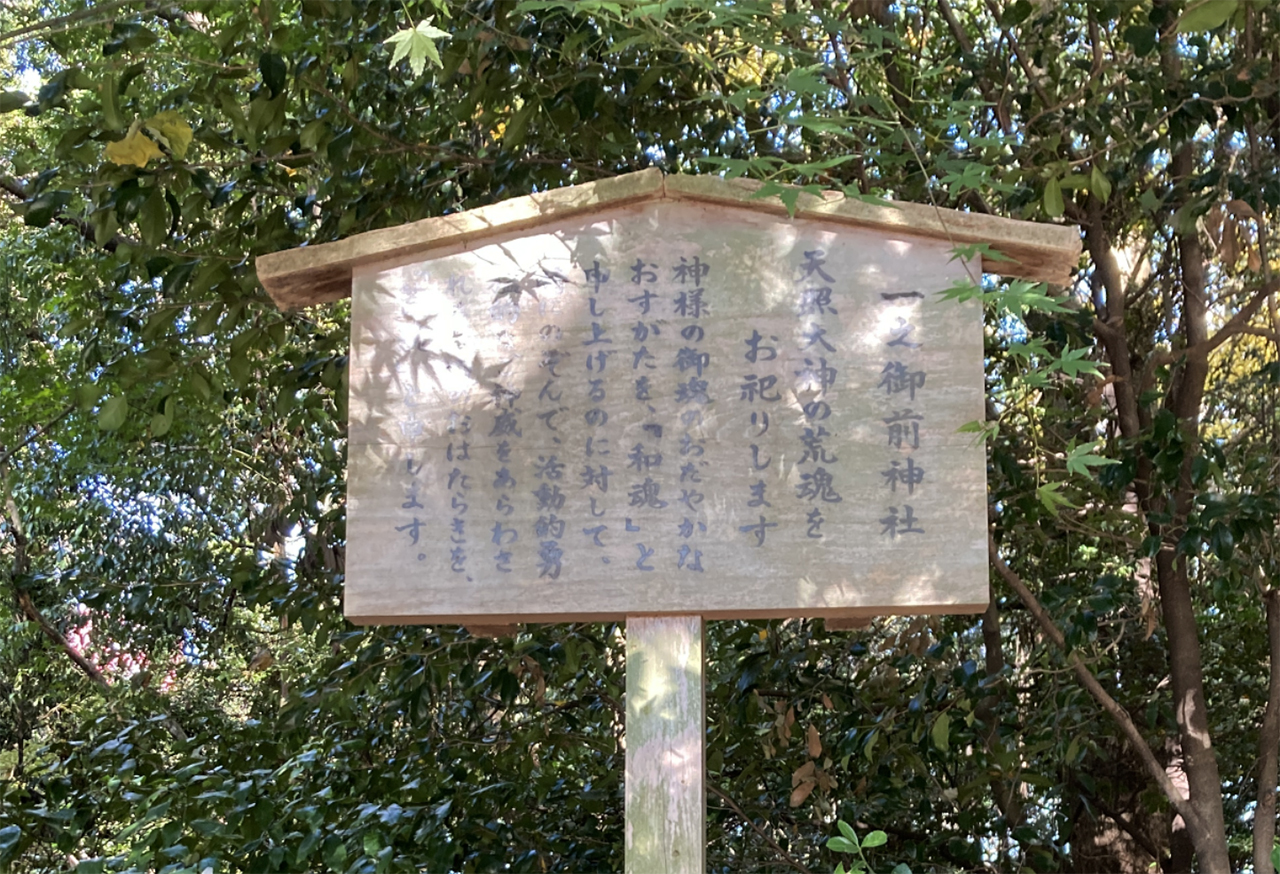 一之御前神社
天照大神の荒魂を
お祀りします
神様の御魂のおだやかな
おすがたを、「和魂」と
申し上げるのに対して、
のぞんで、活動的勇
神威をあらわさ
れ おはたらきを、
します。